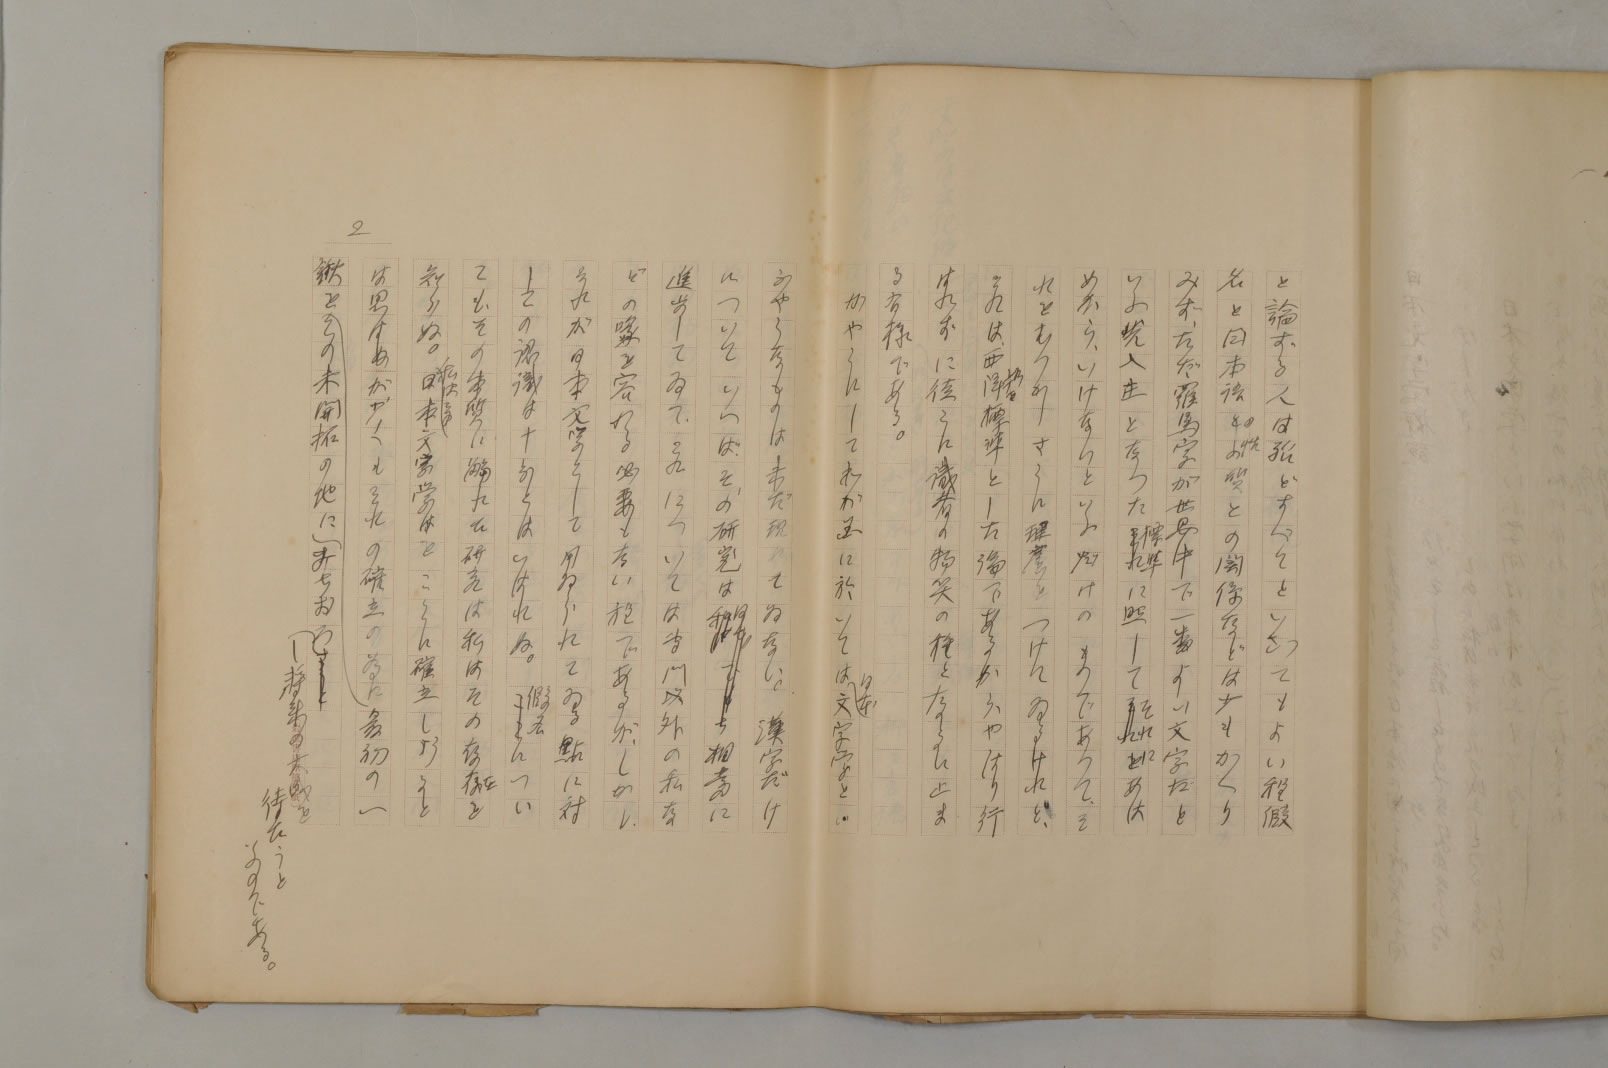 と論ずる人は殆どすべてといつてもよい程假
名と日本語の性質との関係などは少もかへり
みず、ただ羅馬字が世界中で一番よい文字だと
いふ先入主となつた標準に照してそれに
めから、いけないといふだけのものであつて、そ
れをむつかしさうに理窟をつけてゐるけれど、
これは、西洋標準とした論であるからやはり行
はれずに徒らに識者の物笑の種となるに止ま
る有様である。
かやうにしてわが国に於いては日本文字学とい
ふやうなものはまだ現れてゐない。漢字だけ
についていへば、その研究は相当に
進歩してゐて、これについては専門以外の私な
どの喙を容れる必要もない程であるが、しかし、
それが日本文字として用ゐられてゐる點に対
しての認識は十分とはいはれぬ。假名につい
てもその本質に觸れた研究は私はその存在を
知らぬ。私は日本文字学はここに確立しようと
は思はぬが少くもそれの確立の為に最初の一
鍬をその未開拓の地に
将来の大成を
待たうと
するのである。
2